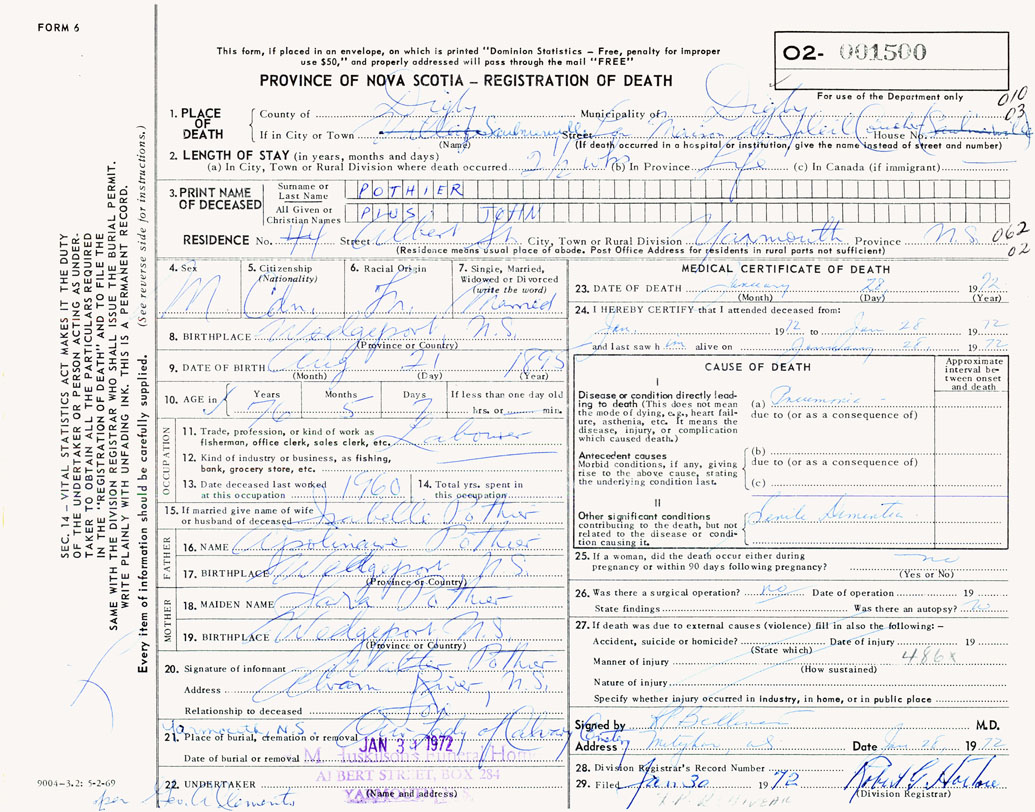 FORM 6
This form, if placed in an envelope, on which is printed "Dominion Statistics – Free, penalty for improper
use $50," and properly addressed will pass through the mail "FREE"
PROVINCE OF NOVA SCOTIA – REGISTRATION OF DEATH
O2- 001500
For use of the Department only
010
03
1. PLACE OF DEATH
County of Digby Municipality of Digby
If in City or Town Saulnierville Street For Maison Au Soleil Couchet House No. Saulnierville
(Name) (If death occurred in a hospital or institution, give the name instead of street and number)
2. LENGTH OF STAY (in years, months and days)
(a) In City, Town or Rural Division where death occurred 2 1/2 wks (b) In Province Life (c) In Canada (if immigrant)
3. PRINT NAME OF DECEASED
Surname or Last Name POTHIER
All Given or Christian Names PIUS JOHN
RESIDENCE No. 44 Street Albert St. City, Town or Rural Division Yarmouth Province N.S.
(Residence means usual place of abode. Post Office Address for residents in rural parts not sufficient)
062
02
4. Sex M.
5. Citizenship (Nationality) Cdn.
6. Racial Origin Fr.
7. Single, Married, Widowed or Divorced (write the word) Married
8. BIRTHPLACE Wedgeport, N.S.
(Province or Country)
9. DATE OF BIRTH Aug 21 1895
(Month) (Day) (Year)
10. AGE in Years 76 Months 5 Days 7 If less than one day old
hrs. or min.
OCCUPATION
11. Trade, profession or kind of work as
fisherman, office clerk, sales clerk, etc. Labourer
12. Kind of industry or business, as fishing,
bank, grocery store, etc.
13. Date deceased last worked
at this occupation 1960
14. Total yrs. spent in
this occupation
15. If married give name of wife
or husband of deceased Isabelle Pothier
FATHER
16. NAME Apolinaire Pothier
17. BIRTHPLACE Wedgeport N.S.
(Province or Country)
MOTHER
18. MAIDEN NAME Sara Pothier
19. BIRTHPLACE Wedgeport, N.S.
(Province or Country)
20. Signature of informant Walter Pothier
Address River, N.S.
Relationship to deceased Son
Yarmouth, N.S.
21. Place of burial, cremation or removal Our Lady of Calvary Cemetery
Date of burial or removal JAN 31 1972
Funeral Home
ALBERT STREET, BOX 284
22. UNDERTAKER
(Name and address)
per Geo. A Clements
9004–3.2: 5-2-69
MEDICAL CERTIFICATE OF DEATH
23. DATE OF DEATH January 28 1972
(Month) (Day) (Year)
24. I HEREBY CERTIFY that I attended deceased from:
Jan. 1972 to Jan 28 1972
and last saw him alive on January 28 1972
CAUSE OF DEATH
Approximate interval between onset and death
I
Disease or condition directly leading to death (This does not mean the mode of dying, e.g., heart failure, asthenia, etc. It means the disease, injury, or complication which caused death.)
(a) Pneumonia
due to (or as a consequence of)
Antecedent causes
Morbid conditions, if any, giving rise to the above cause, stating the underlying condition last.
(b)
due to (or as a consequence of)
(c)
II
Other significant conditions contributing to the death, but not related to the disease or condition causing it.
Senile Dementia
25. If a woman, did the death occur either during
pregnancy or within 90 days following pregnancy? no
(Yes or No)
26. Was there a surgical operation? no Date of operation 19
State findings Was there an autopsy? No
27. If death was due to external causes (violence) fill in also the following: –
Accident, suicide or homicide? Date of injury 19
(State which)
Manner of injury 486x
(How sustained)
Nature of injury
Specify whether injury occurred in industry, in home, or in public place
Signed by M.D.
Address Meteghan, NS Date Jan 28, 1972
28. Division Registrar's Record Number
29. Filed Jan 30 1972 Robert G.
(Division Registrar)
SEC. 14 – VITAL STATISTICS ACT MAKES IT THE DUTY
OF THE UNDERTAKER OR PERSON ACTING AS UNDER-
TAKER TO OBTAIN ALL THE PARTICULARS REQUIRED
IN THE "REGISTRATION OF DEATH" AND TO FILE THE
SAME WITH THE DIVISION REGISTRAR WHO SHALL ISSUE THE BURIAL PERMIT.
WRITE PLAINLY WITH UNFADING INK. THIS IS A PERMANENT RECORD.
Every item of information should be carefully supplied. (See reverse side for instructions.)